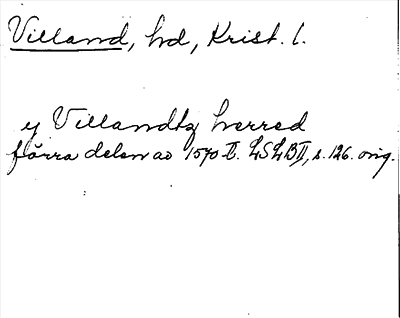 Villand, hd, Krist. l.
y Villandtz herred
förra delen av 1570 t. LSLB II, s. 126. orig.